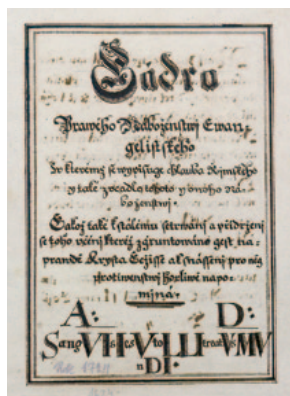 Jádro
Praweho Náboženstwj Ewan,
gelistského
W kteremž se wypisuge chlauba Ržjmského
y také zrcadlo tohoto y onoho ná,
boženstwj.
také k stálému setrwánj a přidrženj
se toho učenj kteréž zgruntowáno gest na,
prawdě Krysta Gežisse a snássenj pro něg
protiwenstwj horliwě napo,
mjná.
A: D:
SangVIIsIesVtoLLItreatVsMV
nDI.